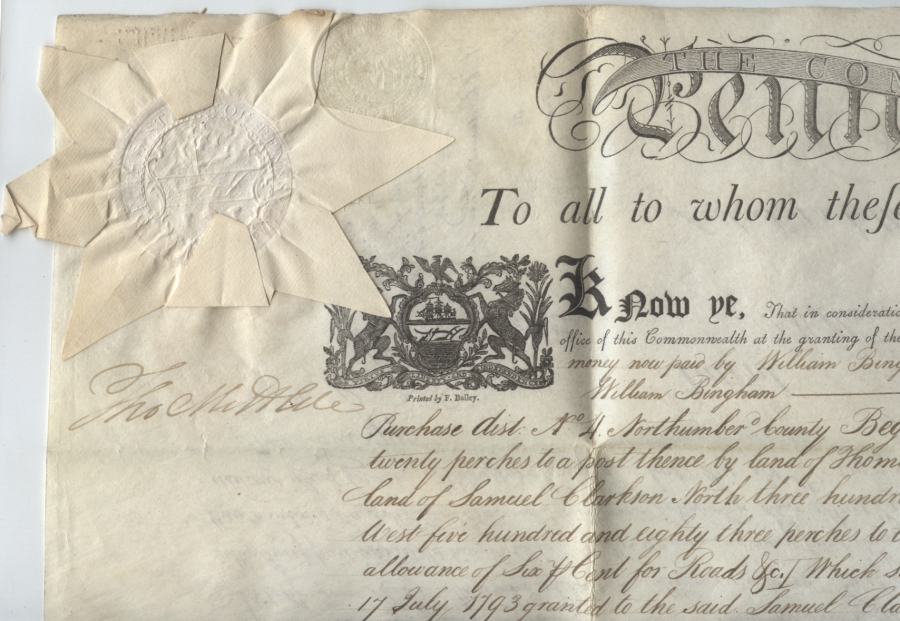 THE CON
Penn
To all to whom theſe
KNow ye, That in consideratio
office of this Commonwealth at the granting of the
money now paid by William Bing
William Bingham
Printed by F. Bailey.
Purchase dist: No 4. Northumberd County Beg
twenty perches to a post thence by land of Thom
land of Samuel Clarkson North three hundr
West five hundred and eighty three perches to
allowance of Six ⅌ Cent for Roads &c.] Which s
17 July 1793 granted to the said Samuel Cla